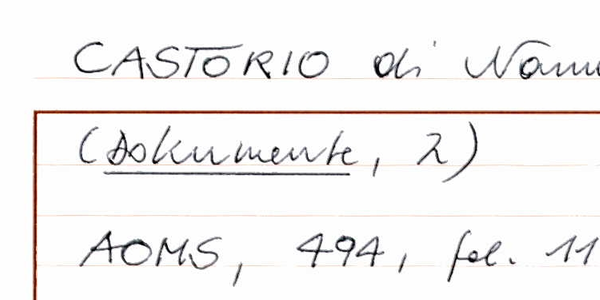 CASTORIO di
(Dokumente, 2)
AOMS, 494, fol. 11